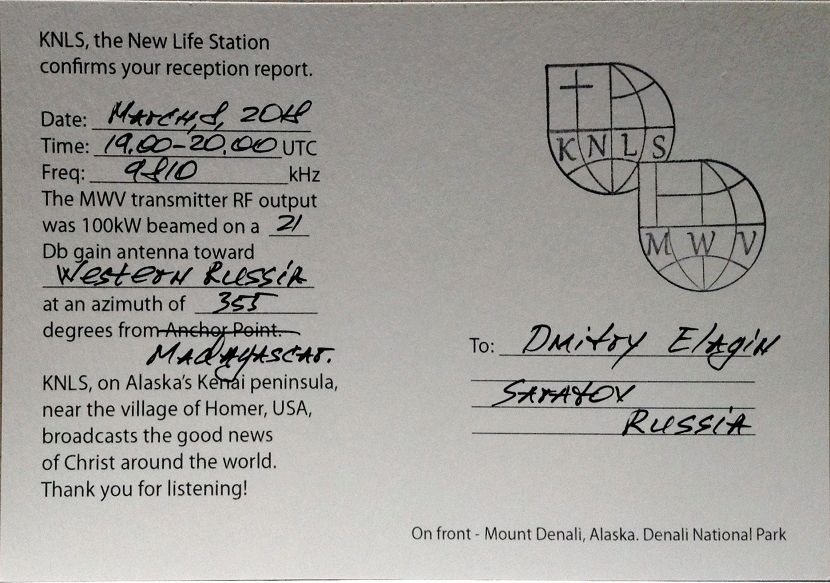 KNLS, the New Life Station
confirms your reception report.
Date: March, 8, 2018
Time: 19.00-20.00 UTC
Freq: 9810 kHz
The MWV transmitter RF output
was 100kW beamed on a 21
Db gain antenna toward
Western Russia
at an azimuth of 355
degrees from Anchor Point.
Madagascar.
KNLS, on Alaska's Kenai peninsula,
near the village of Homer, USA,
broadcasts the good news
of Christ around the world.
Thank you for listening!
KNLS
MWV
To: Dmitry Elagin
Saratov
Russia
On front - Mount Denali, Alaska. Denali National Park